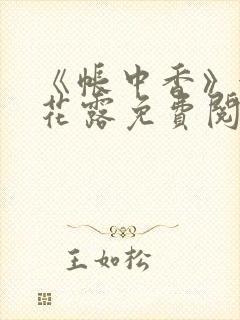 《帐中香》
花露免費閱
王如松